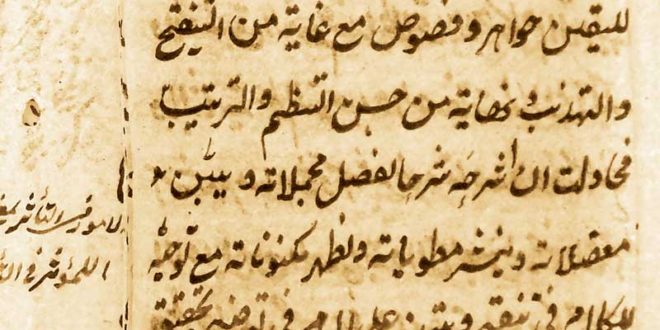 لليقين جواهر وفصوص مع غاية من التنقيح
والتهذيب ونهاية من حسن التنظيم والترتيب
فحاولت ان اشرحه شرحا يفصل مجملاته ويبين
معضلاته وينشر مطوياته ويظهر مكنوناته مع توجيه
للكلام في تنقيح وتنبيه على المرام في توضيح وتحقيق